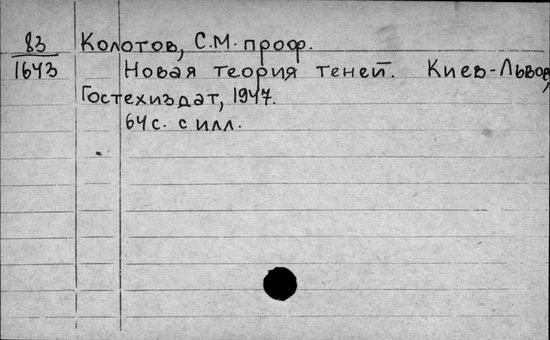 83 Колотов, С.М. проф.
1643 Новая теория теней. Киев-Львов,
Гостехиздат, 1947.
64 с. с илл.